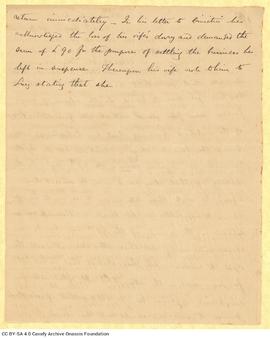 return immediately – In his letter to Christie he
acknowledged the loss of his wife's dowry and demanded the
sum of £90 for the purpose of settling the business he
left in suspense. Thereupon his wife wrote to him to
Liverpool stating that she
CC BY-SA 4.0 Cavafy Archive Onassis Foundation